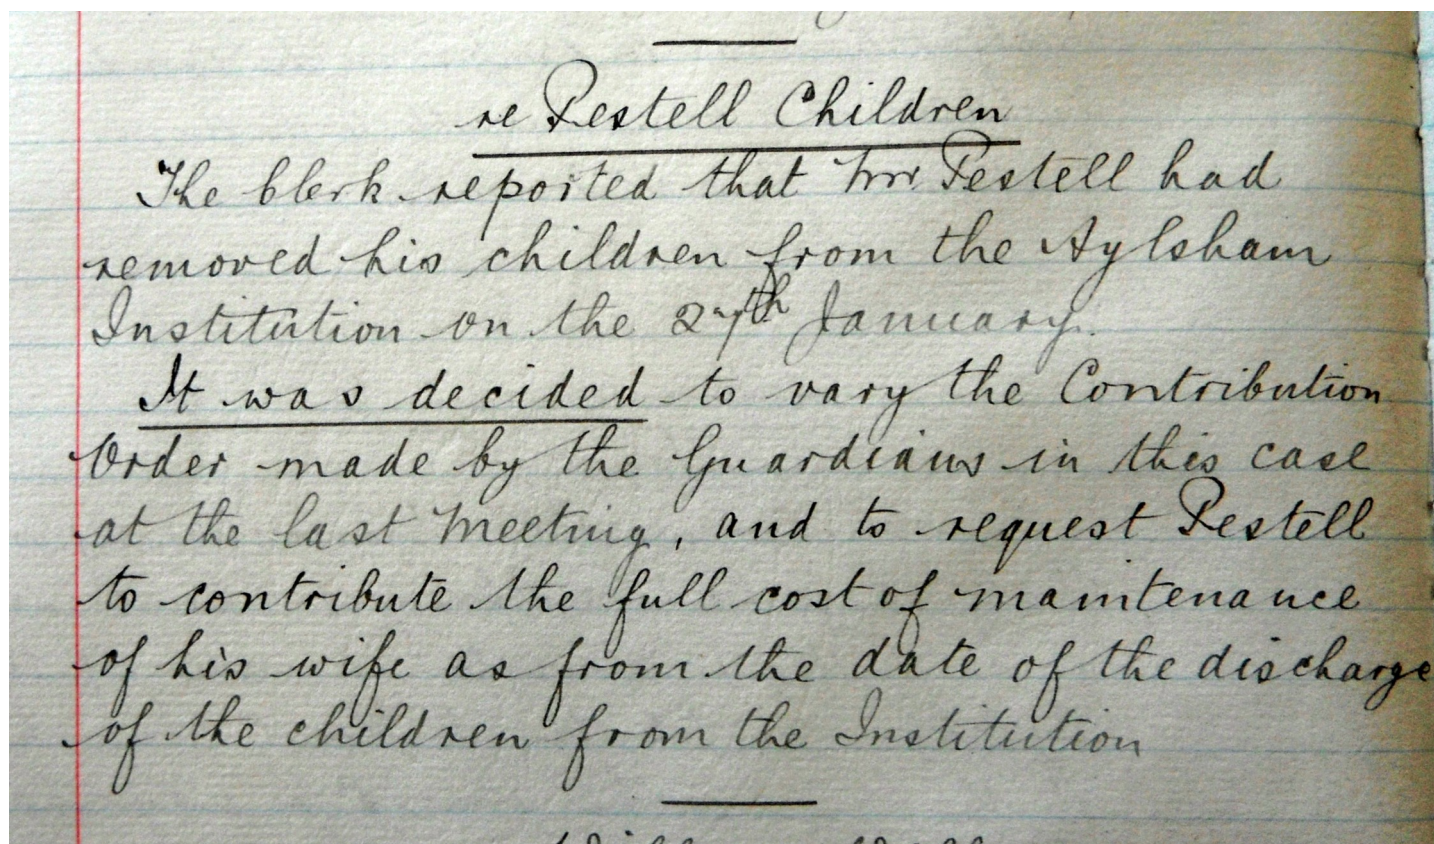 re Pestell Children
The Clerk reported that Mr Pestell had
removed his children from the Aylsham
Institution on the 27th January.
It was decided to vary the Contribution
Order made by the Guardians in this case
at the last Meeting, and to request Pestell
to contribute the full cost of maintenance
of his wife as from the date of the discharge
of the children from the Institution